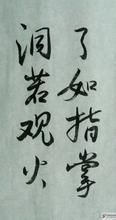 了如指掌
洞若观火